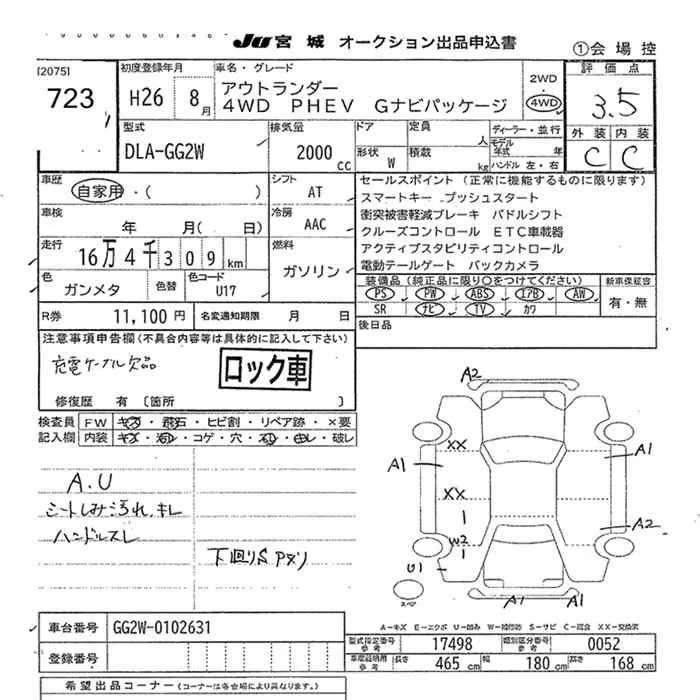 JU 宮城 オークション出品申込書
①会場控
[2075]
723
初度登録年月
H26 8月
車名・グレード
アウトランダー
4WD PHEV Gナビパッケージ
2WD
・
4WD
評価点
3.5
外装 内装
C C
型式
DLA-GG2W
排気量
2000 cc
ドア
定員
人
形状
W
積載
kg
ディーラー・並行
モデル年式 年
ハンドル 左・右
車歴
自家用・( )
シフト
AT
車検
年 月( 日)
冷房
AAC
走行
16万4千309km
燃料
ガソリン
色
ガンメタ
色替
色コード
U17
R券
11,100円
名変通知期限 月 日
セールスポイント (正常に機能するものに限ります)
スマートキー プッシュスタート
衝突被害軽減ブレーキ パドルシフト
クルーズコントロール ETC車載器
アクティブスタビリティコントロール
電動テールゲート バックカメラ
装備品(純正品に限り○をつけてください)
PS PW ABS エアB AW
SR ナビ TV カワ
新車保証書
有・無
後日品
注意事項申告欄(不具合内容等は具体的に記入して下さい)
充電ケーブル欠品
ロック車
修復歴 有 [箇所 ]
検査員
記入欄
FW キズ・飛石・ヒビ割・リペア跡・×要
内装 キズ・汚レ・コゲ・穴・スレ・キレ・破レ
A.U
シートしみ汚れ、キレ
ハンドルスレ
下廻りS アオリ
A2
XX
A1
A1
XX
W2
A2
U1
スペア
A1 A1
A-キズ E-エクボ U-凹み W-補修跡 S-サビ C-腐食 XX-交換済
車台番号
GG2W-0102631
登録番号
型式指定番号
参考
17498
類別区分番号
参考
0052
車庫証明用
参考
長さ 465 cm
幅 180 cm
高さ 168 cm
希望出品コーナー(コーナーは各会場により異なります。)